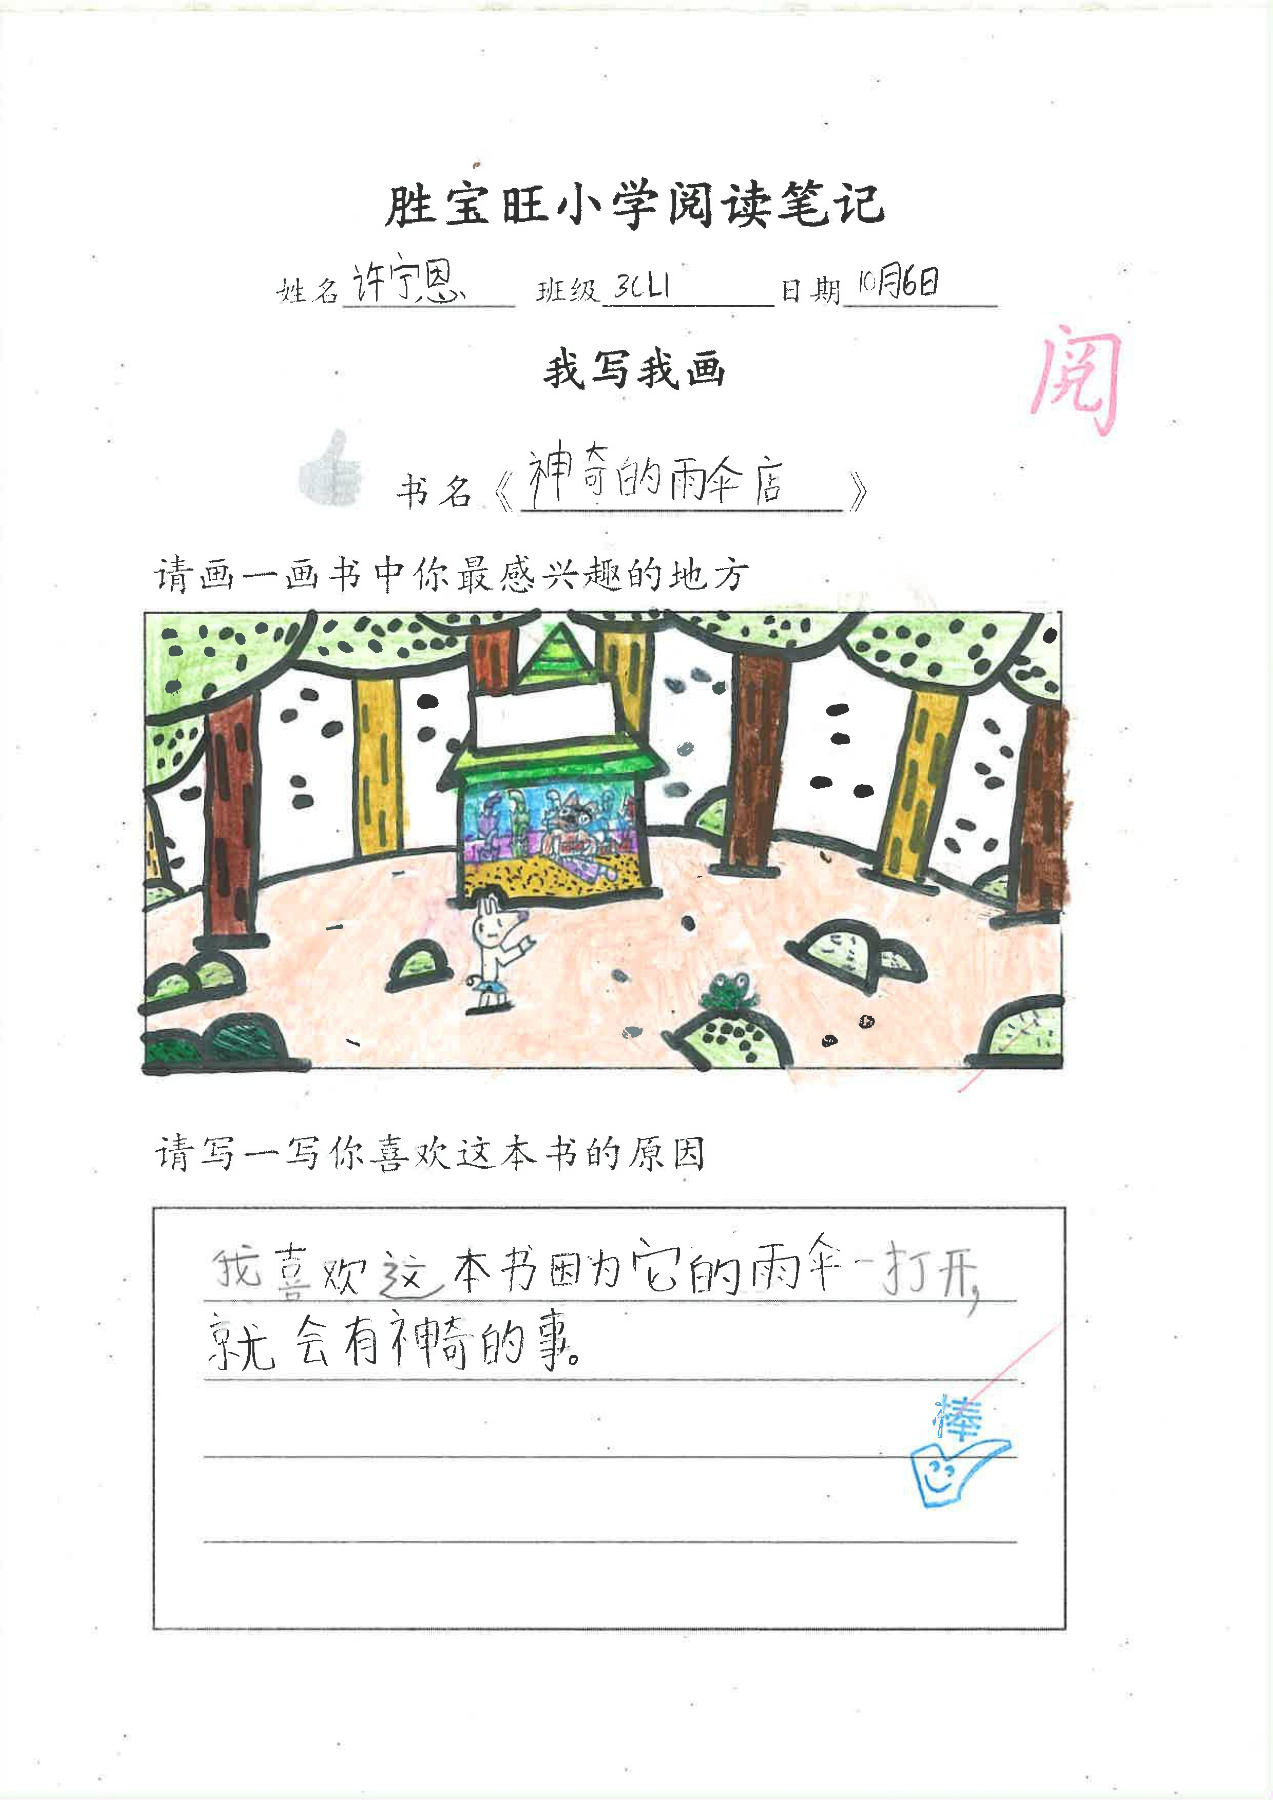 胜宝旺小学阅读笔记
姓名 许宁恩 班级 3CL1 日期 10月6日
我写我画
阅
书名《神奇的雨伞店》
请画一画书中你最感兴趣的地方
请写一写你喜欢这本书的原因
我喜欢这本书因为它的雨伞一打开,
就会有神奇的事。
棒